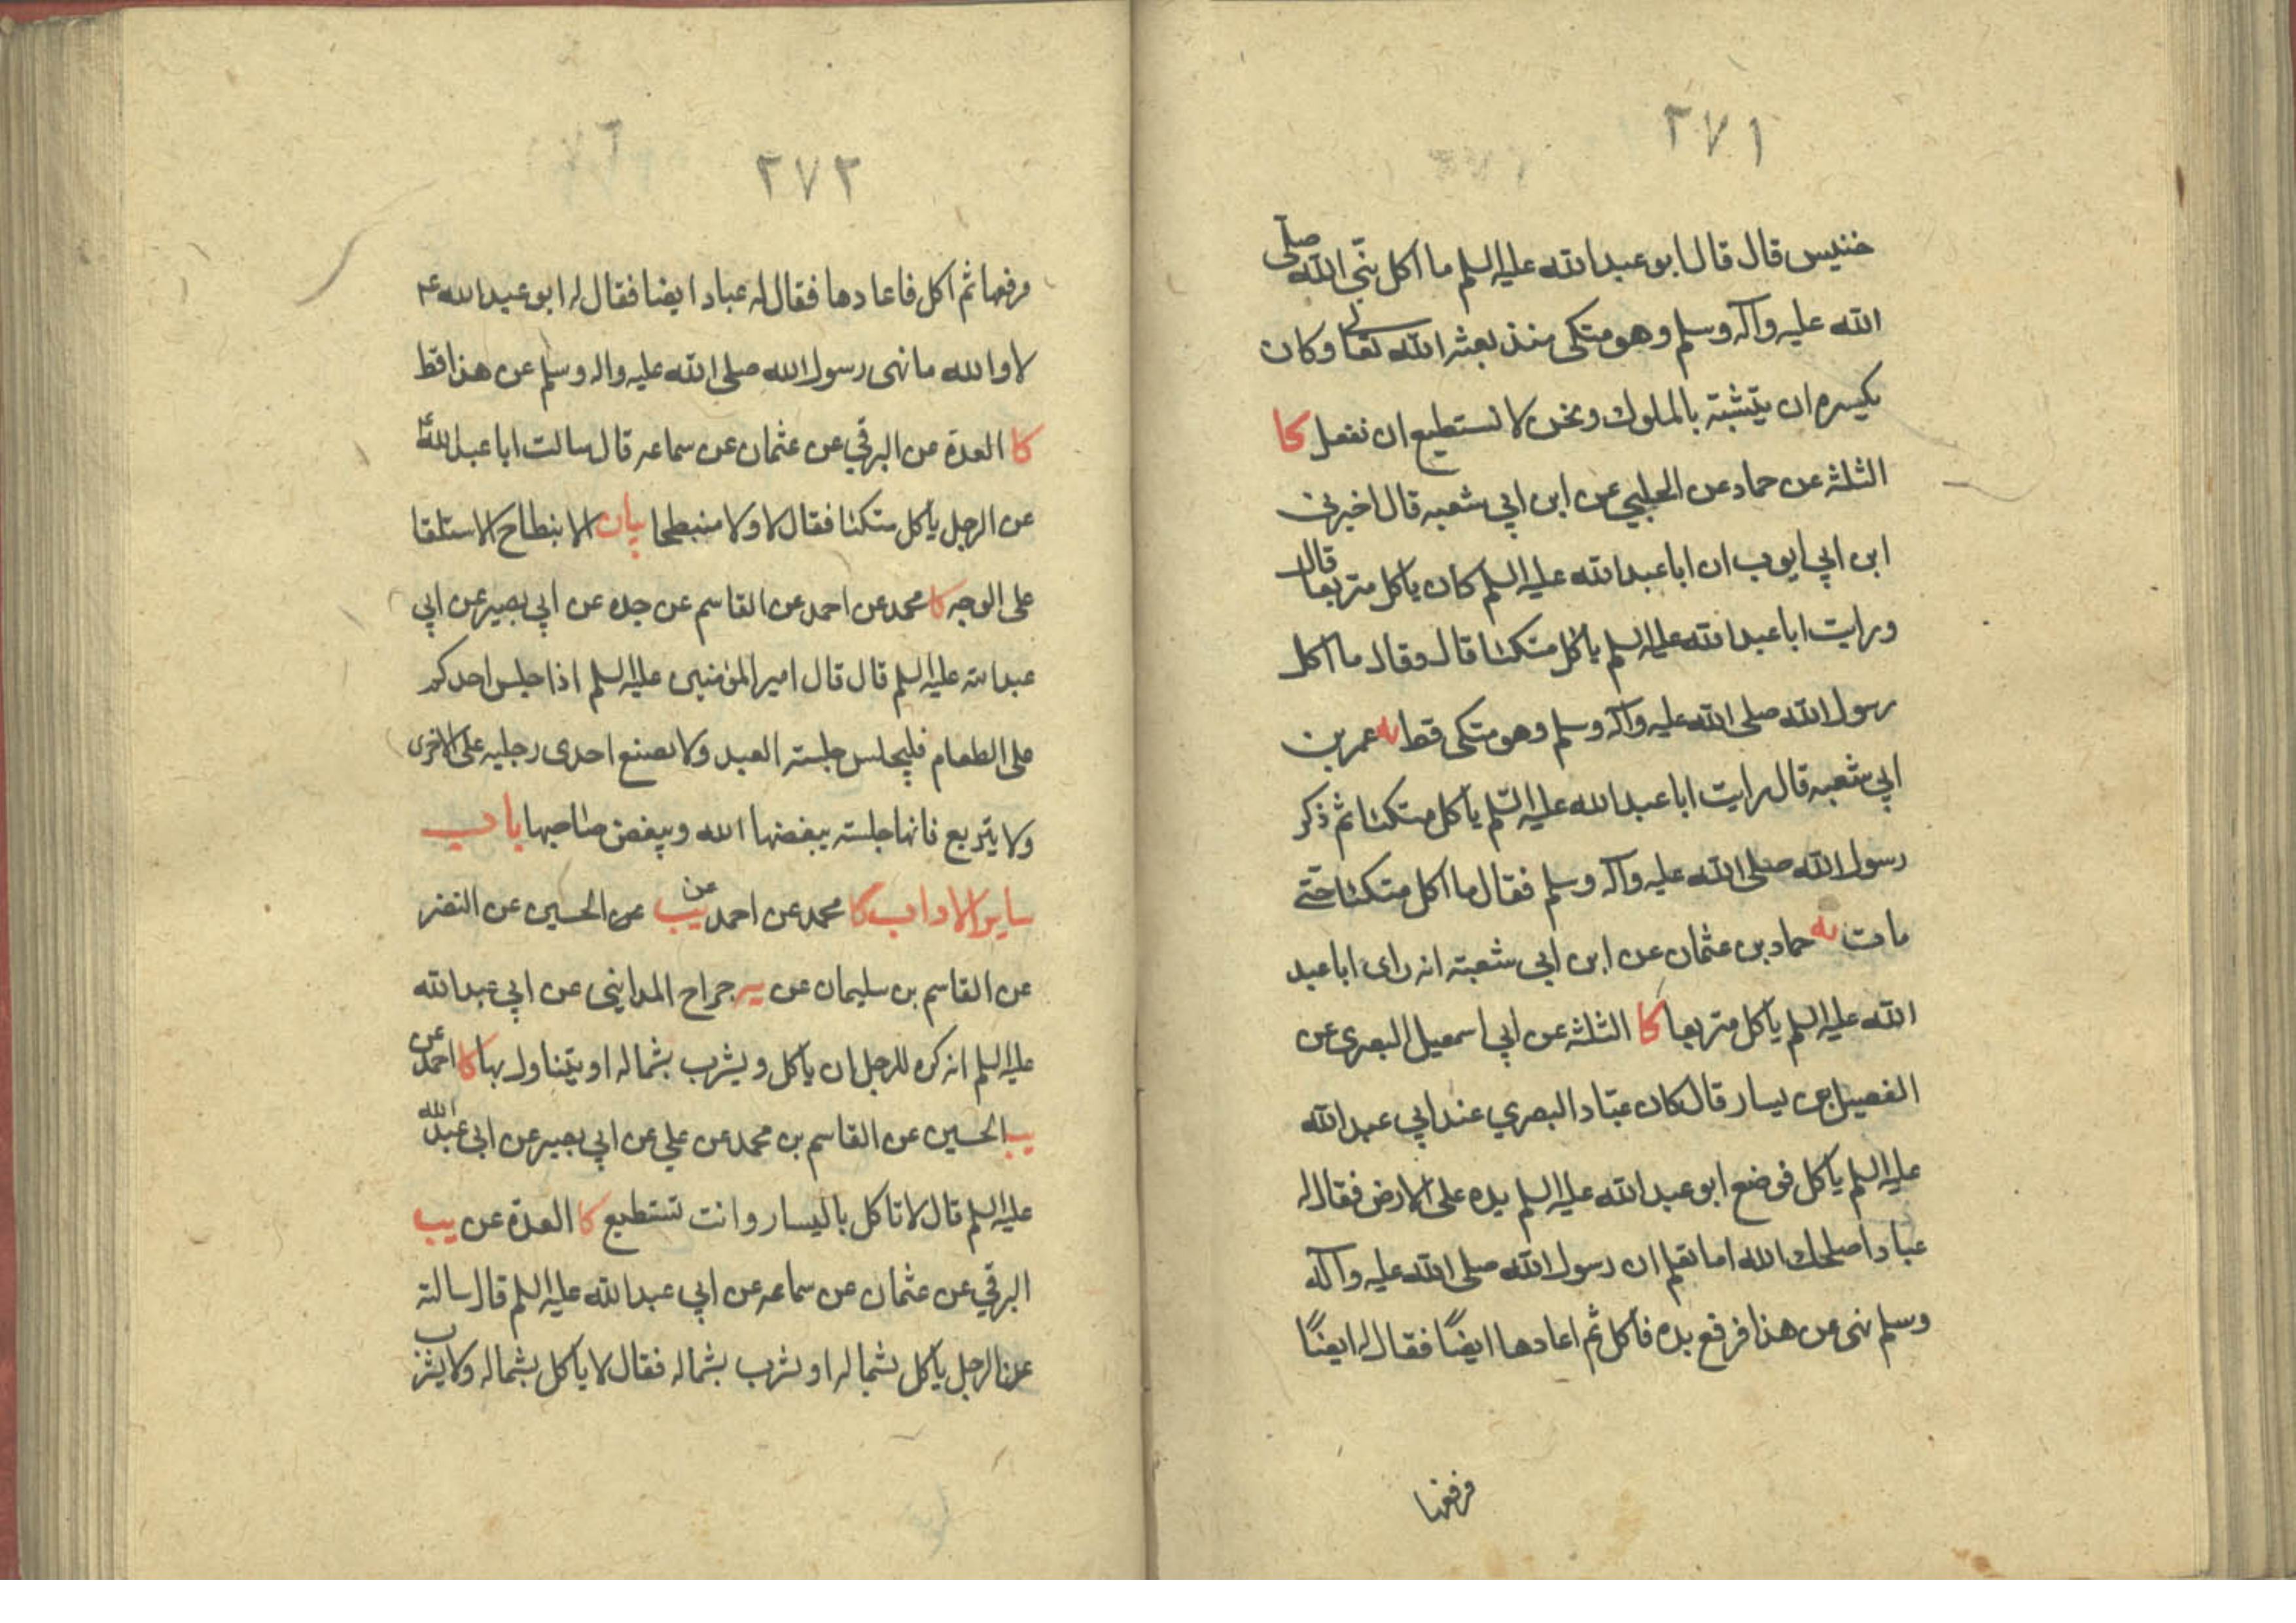 ٢٧١
خنيس قال قال ابو عبد الله عليه السلم ما اكل نبي الله صلى
الله عليه وآله وسلم وهو متكى منذ بعثه الله تعالى وكان
يكره ان يتشبه بالملوك ونحن لا نستطيع ان نفعل كا
الثلثه عن حماد عن الحلبي عن ابن ابي شعبه قال اخبرني
ابن ابي ايوب ان ابا عبد الله عليه السلم كان ياكل متربعا قال
ورايت ابا عبد الله عليه السلم ياكل متكئا قال وقال ما اكل
رسول الله صلى الله عليه وآله وسلم وهو متكى قط يه عمر بن
ابي شعبه قال رايت ابا عبد الله عليه السلم ياكل متكئا ثم ذكر
رسول الله صلى الله عليه وآله وسلم فقال ما اكل متكئا حتى
مات يه حماد بن عثمان عن ابن ابي شعبته انه راى ابا عبد
الله عليه السلم ياكل متربعا كا الثلثه عن ابي اسمعيل البصرى عن
الفضيل بن يسار قال كان عباد البصري عند ابي عبد الله
عليه السلم ياكل فوضع ابو عبد الله عليه السلم يده على الارض فقال له
عباد اصلحك الله اما تعلم ان رسول الله صلى الله عليه وآله
وسلم نهى عن هذا فرفع يده فأكل ثم اعادها ايضًا فقال له ايضًا
فرفعها
٢٧٢
فرفعها ثم اكل فاعادها فقال له عباد ايضا فقال له ابو عبد الله ع
لا والله ما نهى رسول الله صلى الله عليه واله وسلم عن هذا قط
كا العدة عن البرقي عن عثمان عن سماعه قال سالت ابا عبد الله ع
عن الرجل ياكل متكئا فقال لا ولا منبطحا بيان الانبطاح الاستلقا
على الوجه كا محمد عن احمد عن القاسم عن جده عن ابي بصير عن ابي
عبد الله عليه السلم قال قال امير المؤمنين عليه السلم اذا جلس احدكم
على الطعام فليجلس جلسته العبد ولا يضع احدى رجليه على الاخرى
ولا يتربع فانها جلسته يبغضها الله ويبغض صاحبها باب
ساير الاداب كا محمد عن احمد عن يب عن الحسين عن النضر
عن القاسم بن سليمان عن يه جراح المدايني عن ابي عبد الله
عليه السلم انه كره للرجل ان ياكل ويشرب بشماله او يتناول بها كا احمد عن
يب الحسين عن القاسم بن محمد عن علي عن ابي بصير عن ابي عبد الله
عليه السلم قال لا تاكل باليسار وانت تستطيع كا العدة عن يب
البرقي عن عثمان عن سماعه عن ابي عبد الله عليه السلم قال سالته
عن الرجل ياكل بشماله او يشرب بشماله فقال لا ياكل بشماله ولا يشرب